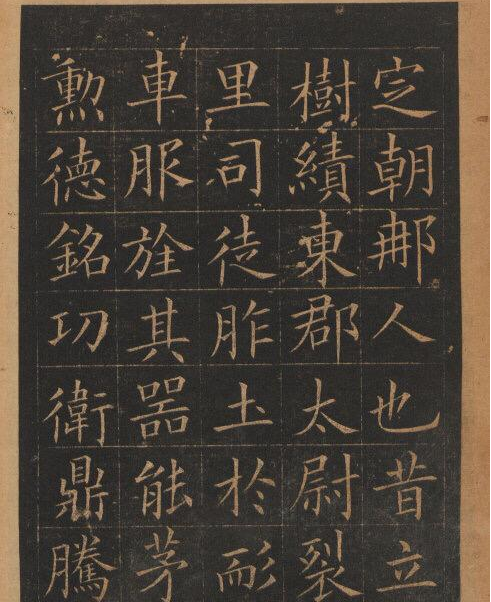 定朝那人也昔立
樹績東郡太尉裂
里司徒胙土於耏
車服旌其器能茅
勲德銘功衛鼎騰